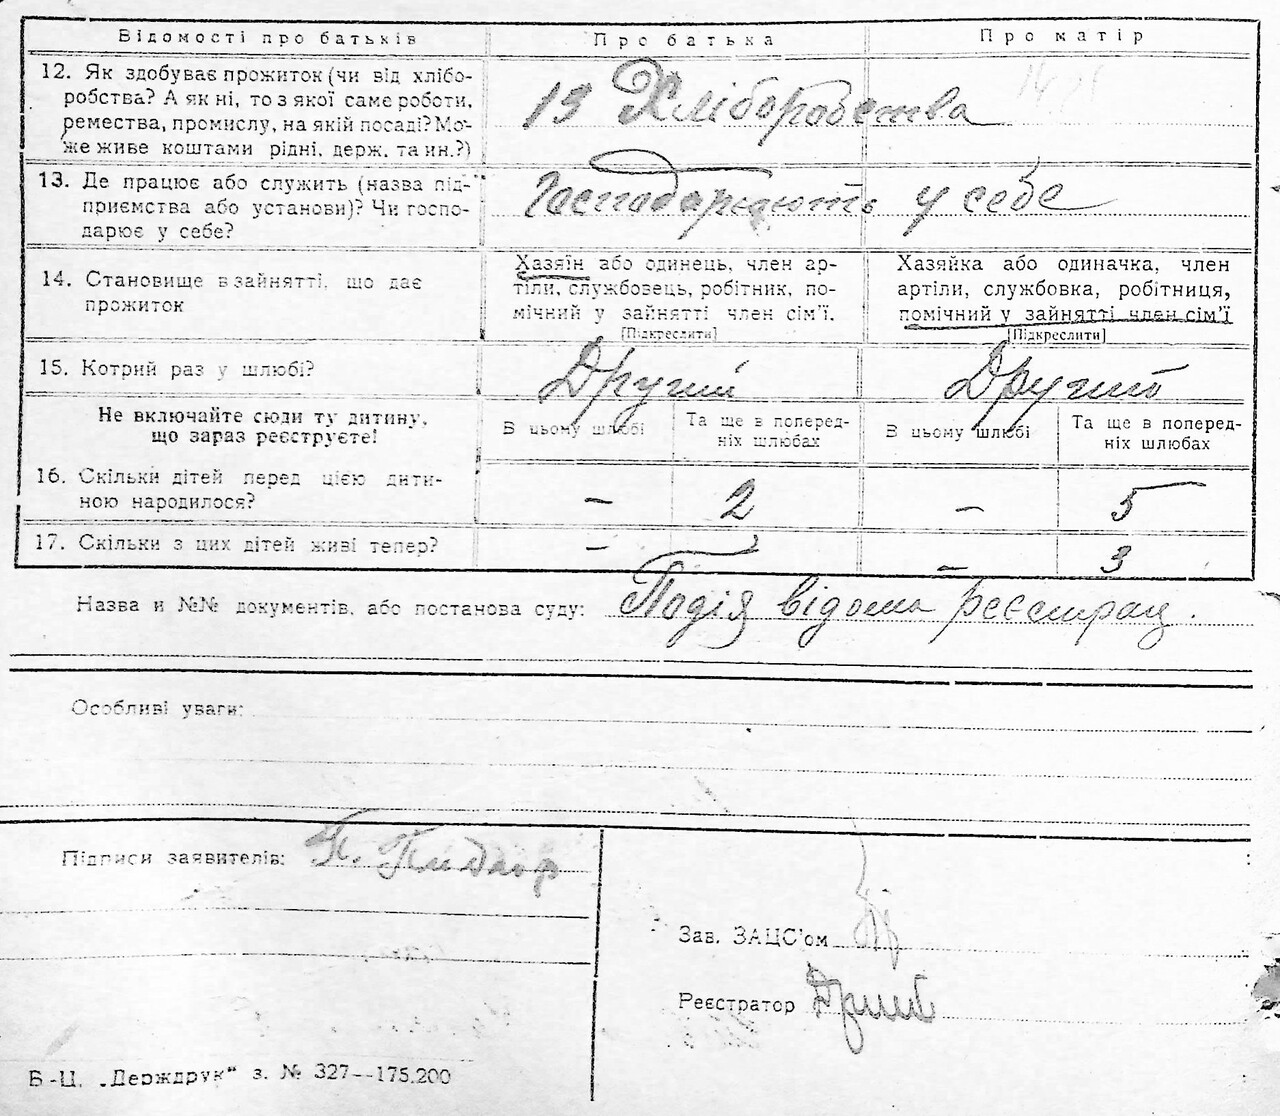 Відомості про батьків Про батька Про матір
12. Як здобуває прожиток (чи від хлібо-
робства? А як ні, то з якої саме роботи,
ремества, промислу, на якій посаді? Мо-
же живе коштами рідні, держ. та ин.?)
13 Хліборобства
13. Де працює або служить (назва під-
приємства або установи)? Чи госпо-
дарює у себе?
Господарюють у себе
14. Становище в зайнятті, що дає
прожиток
Хазяїн або одинець, член ар-
тілі, службовець, робітник, по-
мічний у зайнятті член сім'ї.
[Підкреслити]
Хазяйка або одиначка, член
артіли, службовка, робітниця,
помічний у зайнятті член сім'ї
[Підкреслити]
15. Котрий раз у шлюбі? Другий Другий
Не включайте сюди ту дитину,
що зараз реєструєте!
В цьому шлюбі
Та ще в поперед-
ніх шлюбах
В цьому шлюбі
Та ще в поперед-
ніх шлюбах
16. Скільки дітей перед цією дити-
ною народилося?
– 2 – 5
17. Скільки з цих дітей живі тепер? – – 3
Назва и №№ документів, або постанова суду: Подія відома реєстрац.
Особливі уваги:
Підписи заявителів: П.
Зав. ЗАЦС'ом
Реєстратор
Б-Ц. „Держдрук" з. № 327—175.200